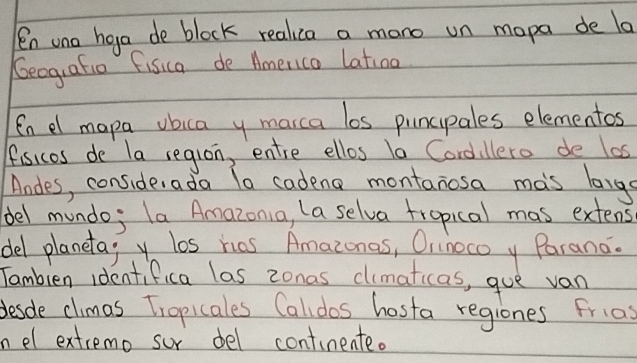 En una hoja de block realiza a mano un mapa de la
Geografía física de America latina.
En el mapa ubica y marca los principales elementos
físicos de la región, entre ellos la Cordillera de los
Andes, considerada la cadena montañosa más larga
del mundo; la Amazonia, la selva tropical mas extens
del planeta; y los ríos Amazonas, Orinoco y Paraná.
Tambien identifica las zonas climaticas, que van
desde climas Tropicales Calidos hasta regiones frias
n el extremo sur del continente.